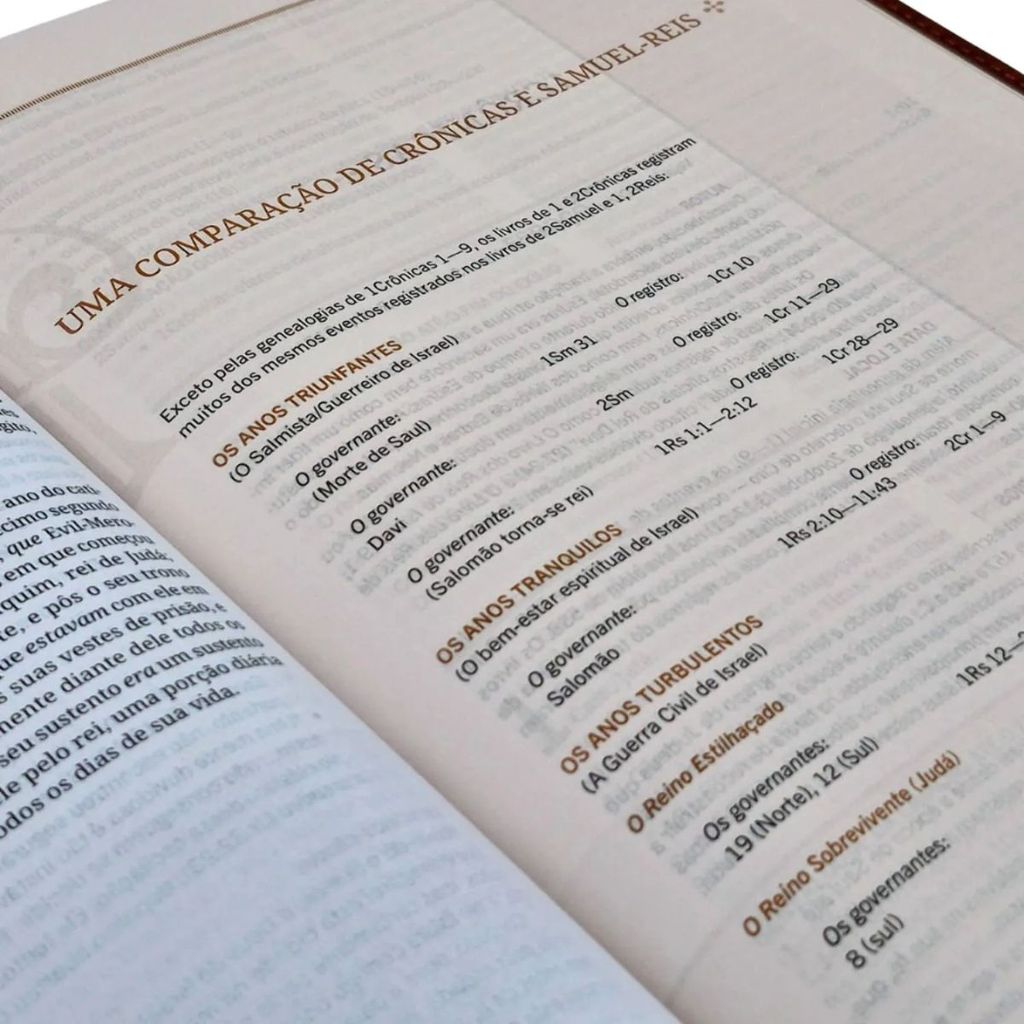 gito,
ano do cati-
écimo segundo
que Evil-Mero-
em que começou
quim, rei de Judá;
e, e pôs o seu trono
ue estavam com ele em
suas vestes de prisão, e
mente diante dele todos os
seu sustento era um sustento
le pelo rei, uma porção diária
odos os dias de sua vida.
UMA COMPARAÇÃO DE CRÔNICAS E SAMUEL-REIS
Exceto pelas genealogias de 1Crônicas 1—9, os livros de 1 e 2Crônicas registram
muitos dos mesmos eventos registrados nos livros de 2Samuel e 1, 2Reis:
OS ANOS TRIUNFANTES
(O Salmista/Guerreiro de Israel)
O governante: 1Sm 31 O registro: 1Cr 10
(Morte de Saul)
O governante: 2Sm O registro: 1Cr 11—29
Davi
O governante: 1Rs 1:1—2:12 O registro: 1Cr 28—29
(Salomão torna-se rei)
OS ANOS TRANQUILOS
(O bem-estar espiritual de Israel)
O governante: 1Rs 2:10—11:43 O registro: 2Cr 1—9
Salomão
OS ANOS TURBULENTOS
(A Guerra Civil de Israel)
O Reino Estilhaçado
Os governantes: 1Rs 12—
19 (Norte), 12 (Sul)
O Reino Sobrevivente (Judá)
Os governantes:
8 (sul)